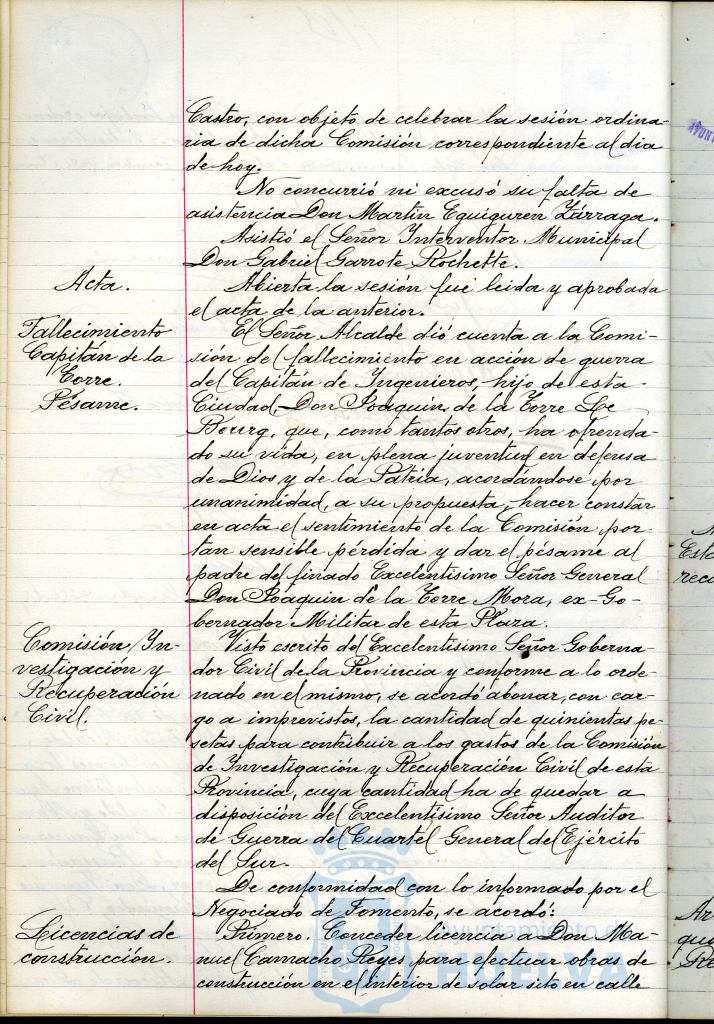 Castro, con objeto de celebrar la sesión ordina-
ria de dicha Comisión correspondiente al dia
de hoy.
No concurrió ni excusó su falta de
asistencia Don Martin Eguiguren Zárraga.
Asistió el Señor Interventor Municipal
Don Gabriel Garrote Rochette.
Acta.
Abierta la sesión fué leida y aprobada
el acta de la anterior.
Fallecimiento
Capitán de la
Torre.
Pésame.
El Señor Alcalde dió cuenta a la Comi-
sión del fallecimiento en acción de guerra
del Capitán de Ingenieros, hijo de esta
Ciudad, Don Joaquin de la Torre Le
Bourg, que, como tantos otros, ha ofrenda-
do su vida, en plena juventud en defensa
de Dios y de la Patria, acordándose por
unanimidad, a su propuesta, hacer constar
en acta el sentimiento de la Comisión por
tan sensible pérdida y dar el pésame al
padre del finado Excelentisimo Señor General
Don Joaquin de la Torre Mora, ex-Go-
bernador Militar de esta Plaza.
Comisión In-
vestigación y
Recuperación
Civil.
Visto escrito del Excelentisimo Señor Goberna-
dor Civil de la Provincia y conforme a lo orde-
nado en el mismo, se acordó abonar, con car-
go a imprevistos, la cantidad de quinientas pe-
setas para contribuir a los gastos de la Comisión
de Investigación y Recuperación Civil de esta
Provincia, cuya cantidad ha de quedar a
disposición del Excelentisimo Señor Auditor
de Guerra del Cuartel General del Ejército
del Sur.
De conformidad con lo informado por el
Negociado de Fomento, se acordó:
Licencias de
construcción.
Primero. Conceder licencia a Don Ma-
nuel Camacho Reyes para efectuar obras de
construcción en el interior de solar sito en calle
ayuntamiento de
HUELVA